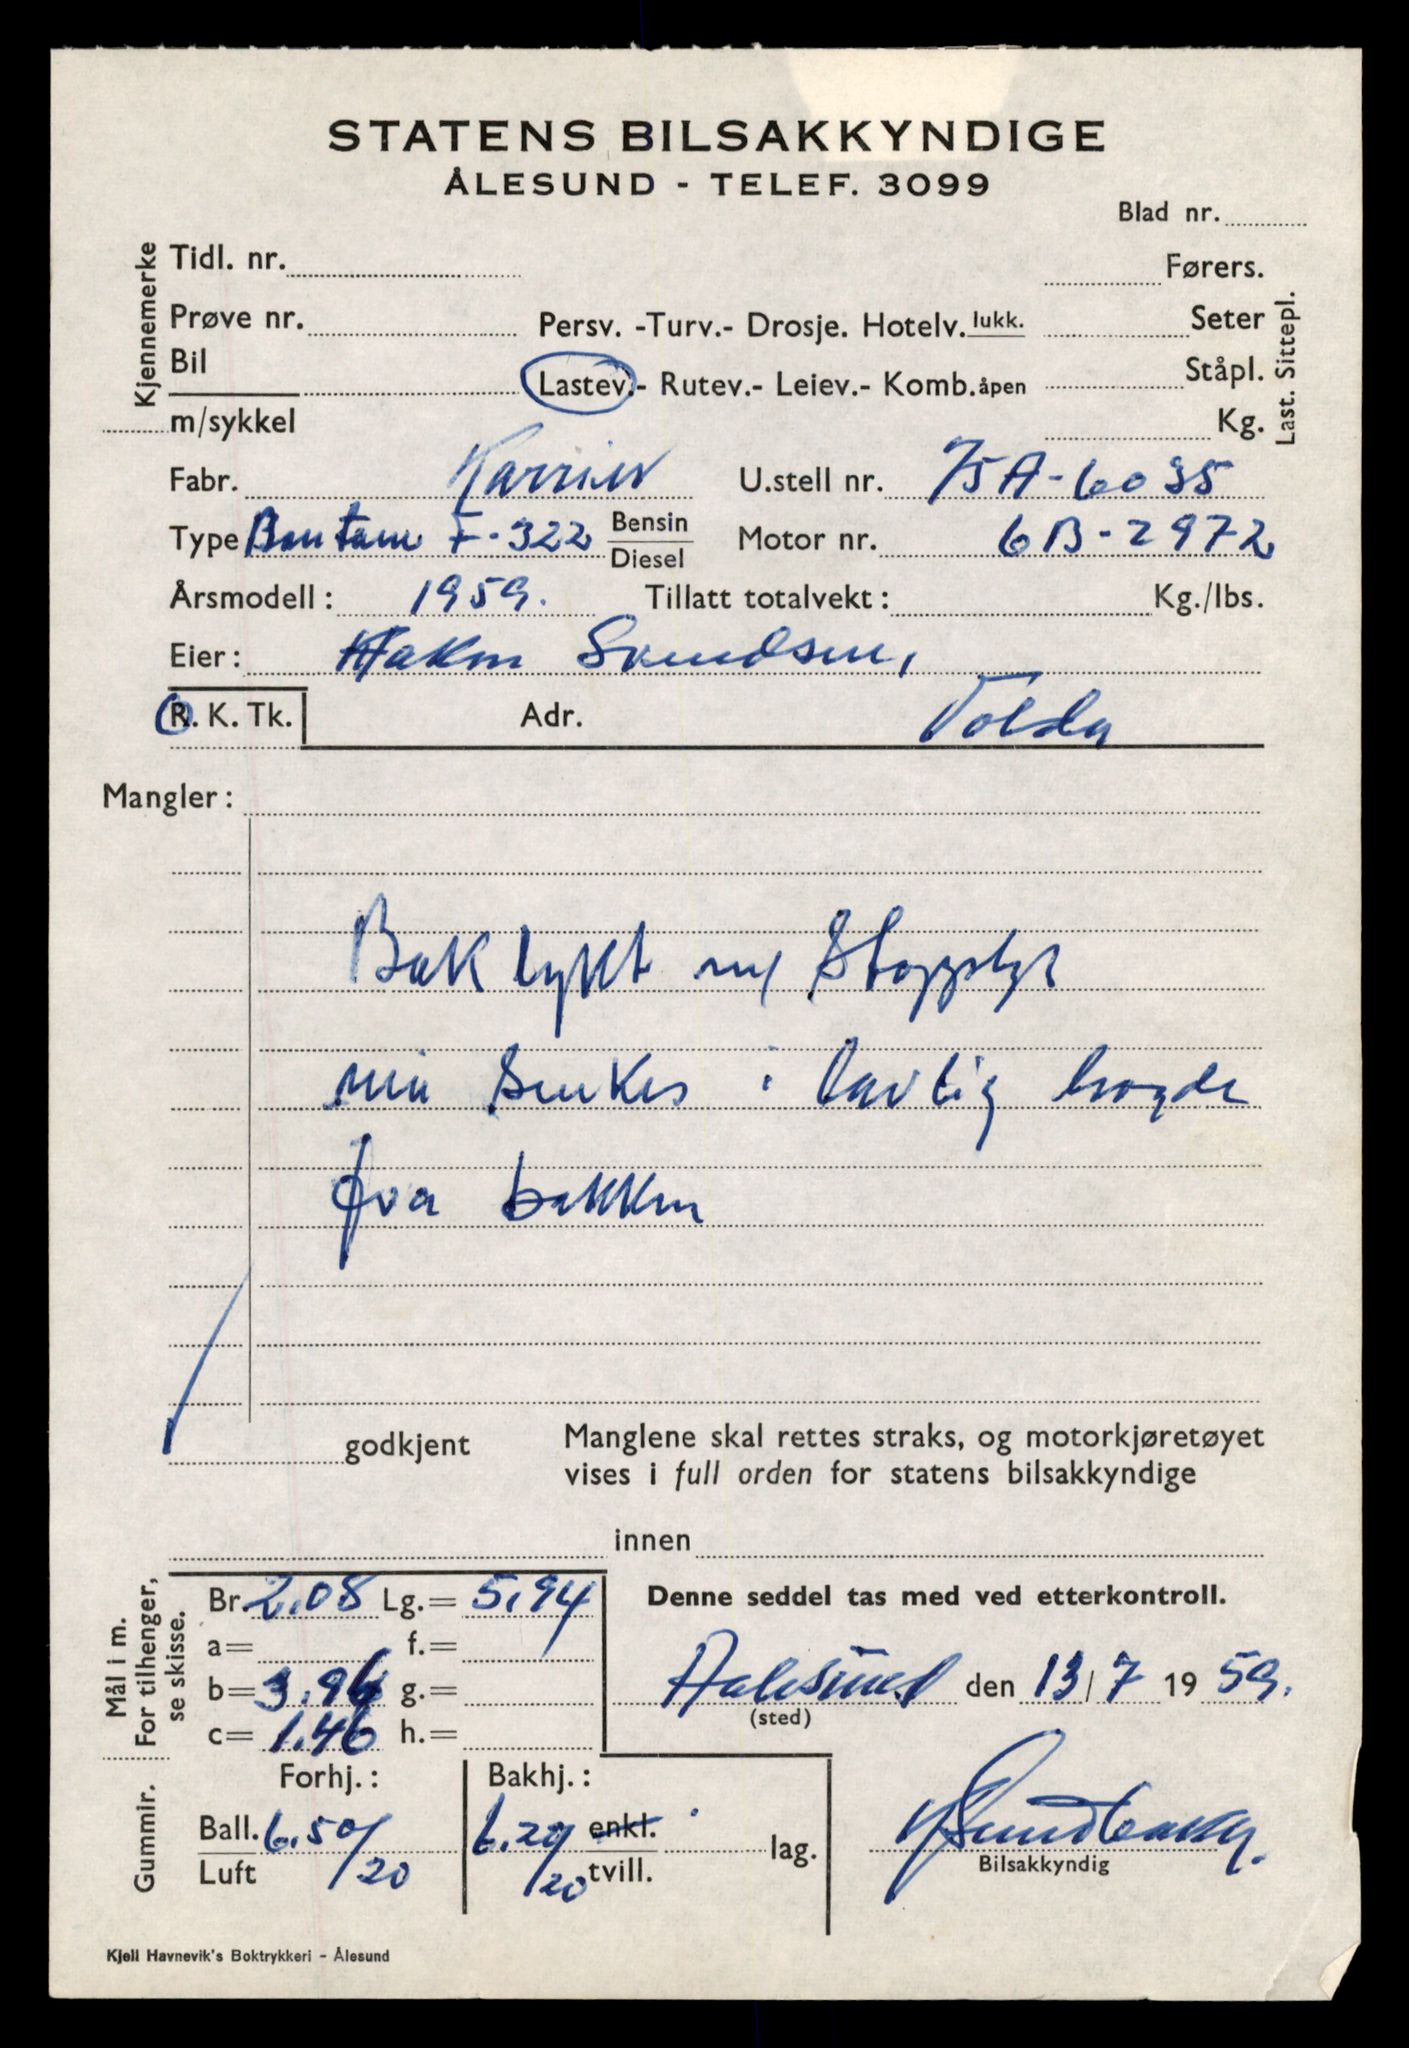 STATENS BILSAKKYNDIGE
ÅLESUND - TELEF. 3099
Blad nr.
Kjennemerke
Tidl. nr.
Førers.
Prøve nr.
Persv. -Turv.- Drosje. Hotelv. lukk.
Seter
Bil
Lastev.- Rutev.- Leiev.- Komb. åpen
Ståpl.
m/sykkel
Kg.
Last. Sittepl.
Fabr. Karrier U.stell nr. 75A-6035
Type Bantam F-322 Bensin Diesel Motor nr. 6B-2972
Årsmodell: 1959. Tillatt totalvekt: Kg./lbs.
Eier: Hakon Svendsen,
R. K. Tk. Adr. Volda
Mangler:
Bak lykt m/ Stopplys
må senkes i lovlig høyde
fra bakken
godkjent
Manglene skal rettes straks, og motorkjøretøyet
vises i full orden for statens bilsakkyndige
innen
Mål i m.
For tilhenger,
se skisse.
Br. 2.08 Lg.= 5,94
Denne seddel tas med ved etterkontroll.
a= f.=
b= 3.96 g.=
Aalesund den 13/7 19 59.
(sted)
c= 1.46 h.=
Gummir.
Forhj.: Bakhj.:
Ball. 6.50/20 6.50/20 enkl. lag.
Luft tvill.
Bilsakkyndig
Kjell Havnevik's Boktrykkeri - Ålesund